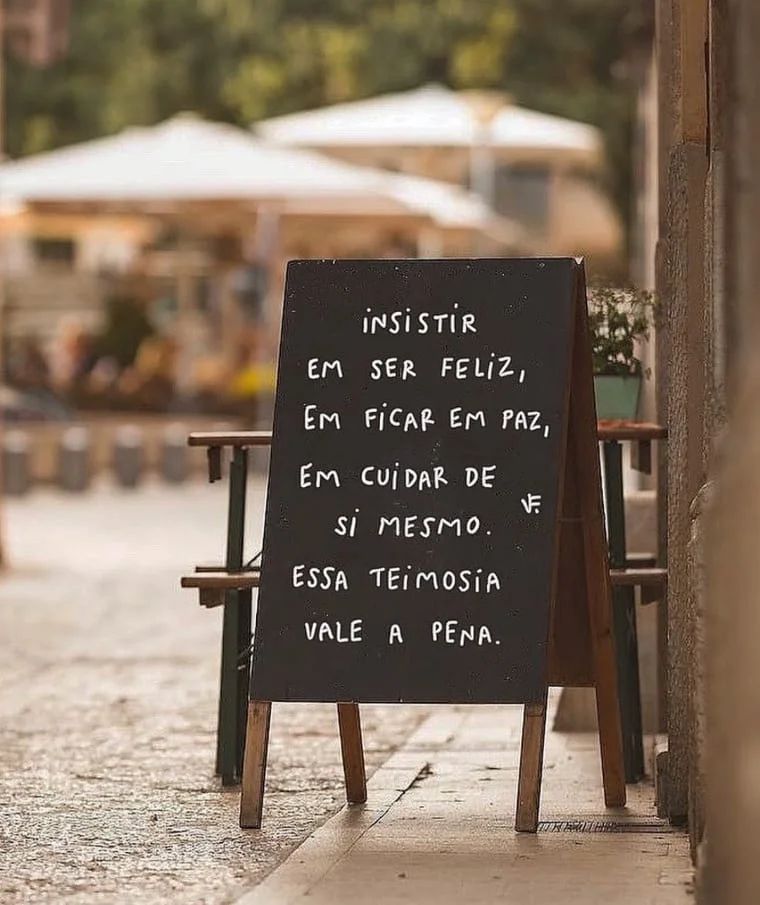 iNSiSTiR
EM SER FELiZ,
EM FiCAR EM PAZ,
EM CUiDAR DE
Si MESMO.
VF.
ESSA TEiMOSiA
VALE A PENA.